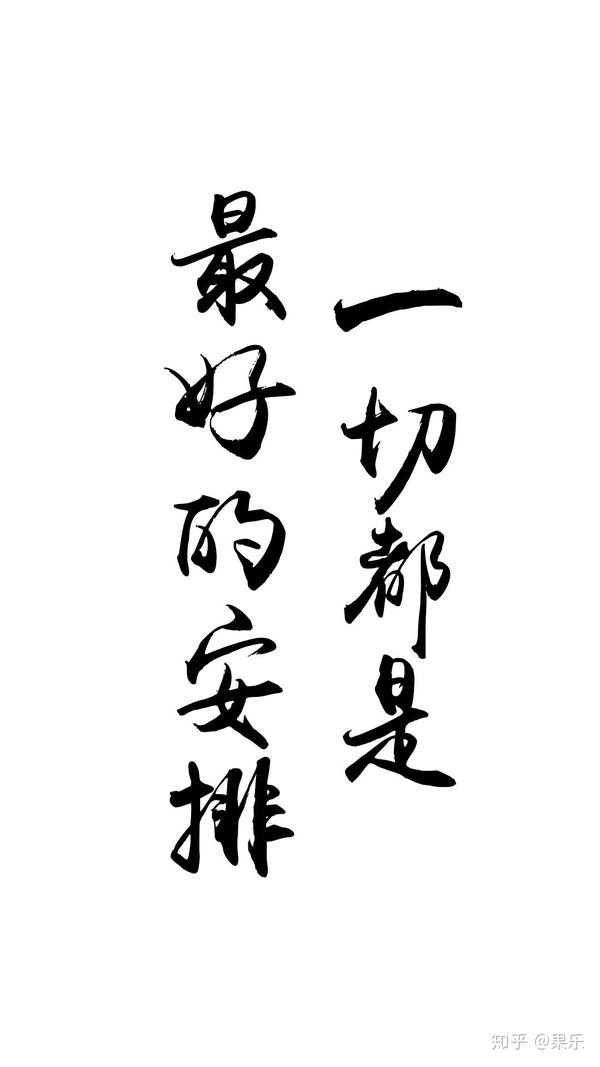 一切都是
最好的安排
知乎 @果乐